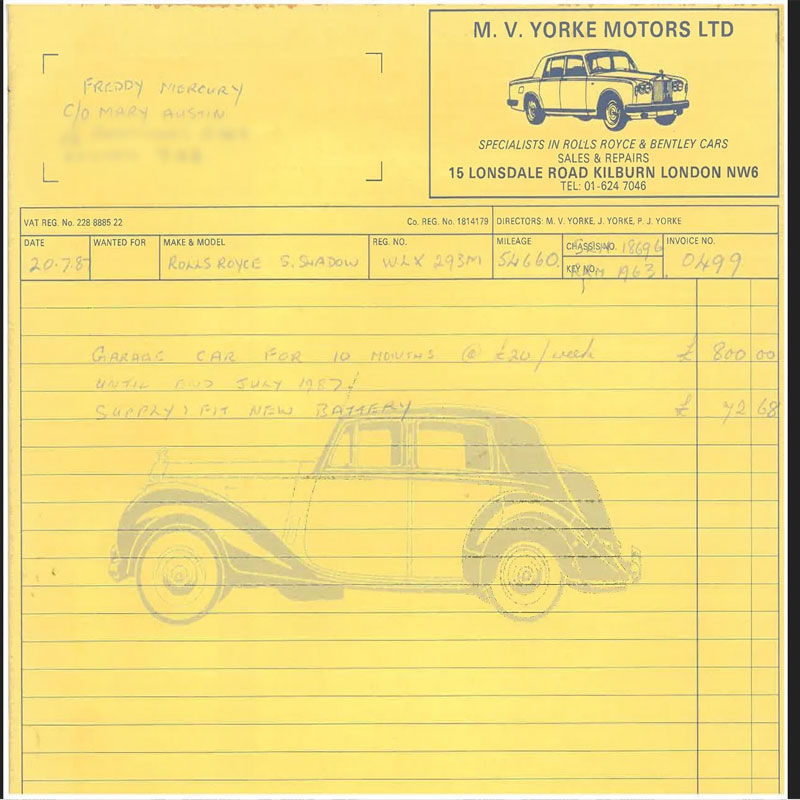 M. V. YORKE MOTORS LTD
SPECIALISTS IN ROLLS ROYCE & BENTLEY CARS
SALES & REPAIRS
15 LONSDALE ROAD KILBURN LONDON NW6
TEL: 01-624 7046
FREDDY MERCURY
C/O MARY AUSTIN
VAT REG. No. 228 8885 22 Co. REG. No. 1814179 DIRECTORS: M. V. YORKE, J. YORKE, P. J. YORKE
DATE WANTED FOR MAKE & MODEL REG. NO. MILEAGE CHASSIS NO. INVOICE NO.
20.7.87 ROLLS ROYCE S. SHADOW WLX 293M 54660 18696 0499
KEY NO. 1963
GARAGE CAR FOR 10 MONTHS @ £20/week £ 800 00
UNTIL END JULY 1987
SUPPLY & FIT NEW BATTERY £ 72 68